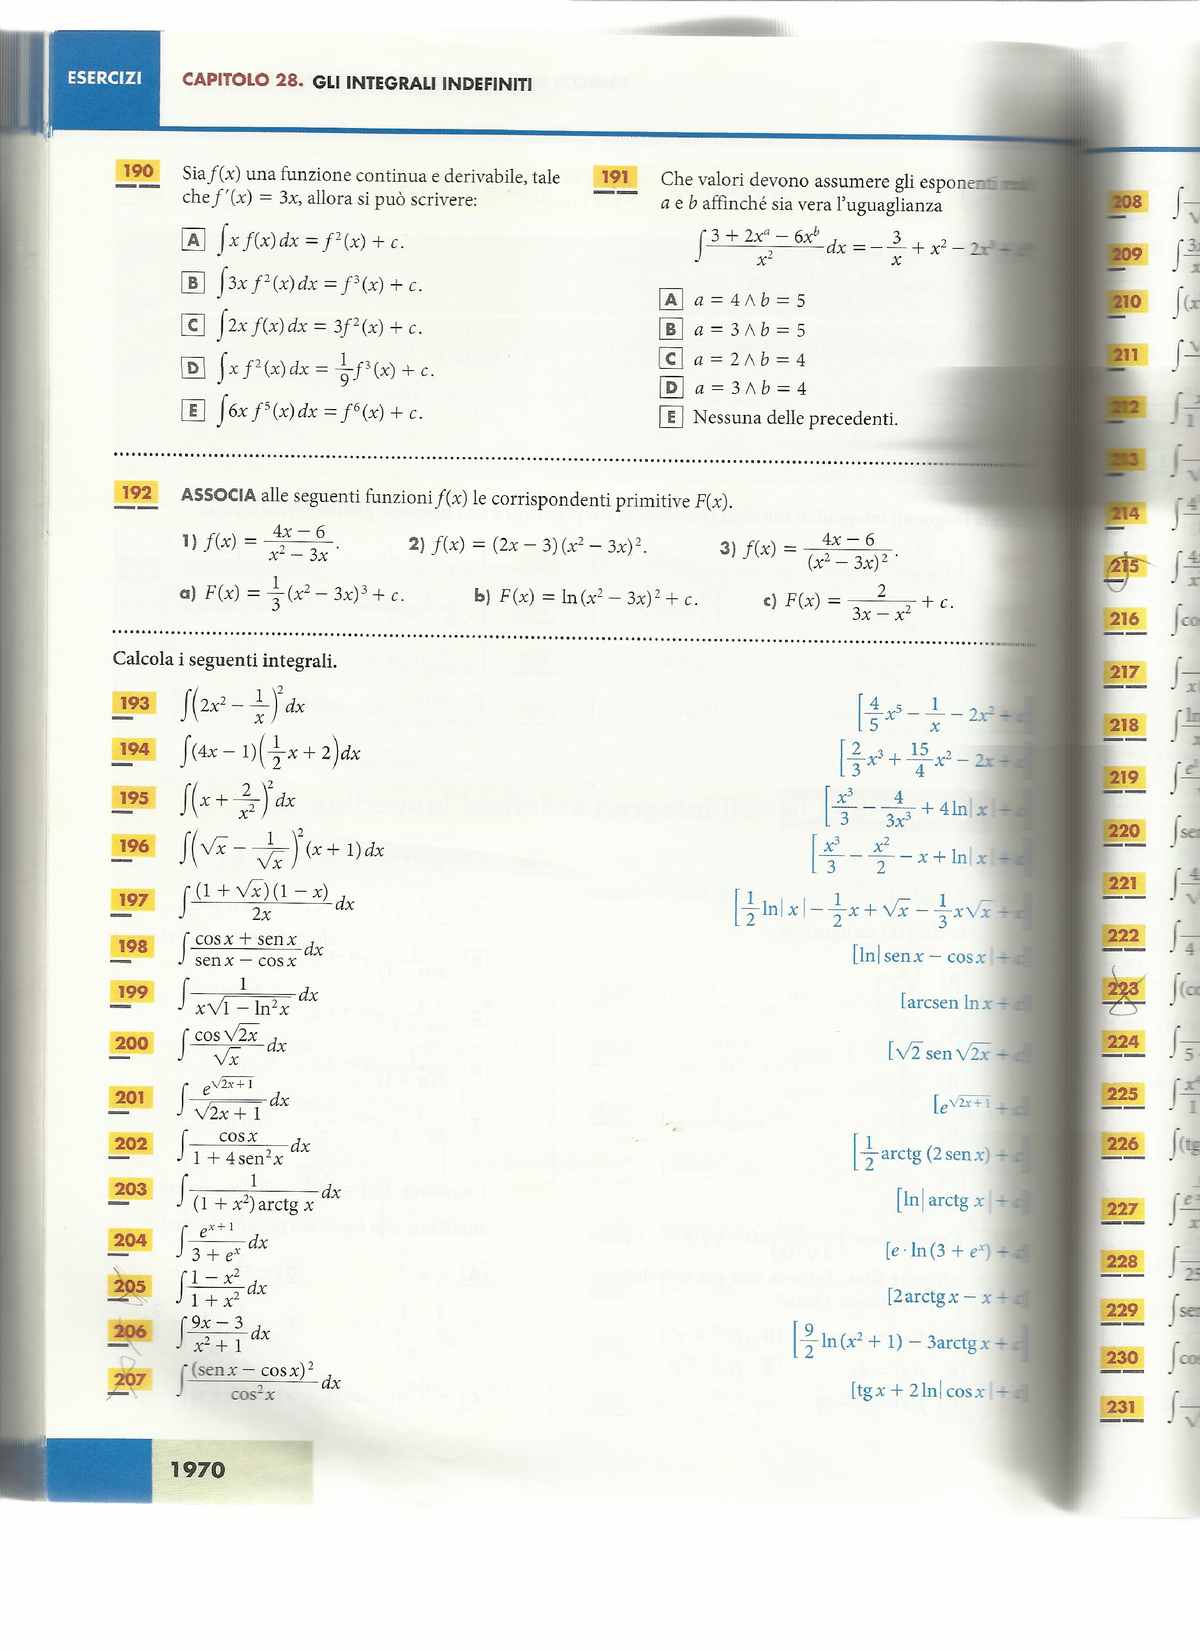 ESERCIZI
CAPITOLO 28. GLI INTEGRALI INDEFINITI
190 Sia f(x) una funzione continua e derivabile, tale
che f′(x) = 3x, allora si può scrivere:
A ∫x f(x) dx = f²(x) + c.
B ∫3x f²(x) dx = f³(x) + c.
C ∫2x f(x) dx = 3f²(x) + c.
D ∫x f²(x) dx = 1/9 f³(x) + c.
E ∫6x f⁵(x) dx = f⁶(x) + c.
191 Che valori devono assumere gli esponenti
a e b affinché sia vera l'uguaglianza
∫(3 + 2xᵃ − 6xᵇ)/x² dx = −3/x + x² − 2x³
A a = 4 ∧ b = 5
B a = 3 ∧ b = 5
C a = 2 ∧ b = 4
D a = 3 ∧ b = 4
E Nessuna delle precedenti.
192 ASSOCIA alle seguenti funzioni f(x) le corrispondenti primitive F(x).
1) f(x) = (4x − 6)/(x² − 3x). 2) f(x) = (2x − 3)(x² − 3x)². 3) f(x) = (4x − 6)/(x² − 3x)².
a) F(x) = 1/3 (x² − 3x)³ + c. b) F(x) = ln(x² − 3x)² + c. c) F(x) = 2/(3x − x²) + c.
Calcola i seguenti integrali.
193 ∫(2x² − 1/x)² dx [4/5 x⁵ − 1/x − 2x² +
194 ∫(4x − 1)(1/2 x + 2) dx [2/3 x³ + 15/4 x² − 2x +
195 ∫(x + 2/x²)² dx [x³/3 − 4/3x³ + 4 ln|x| +
196 ∫(√x − 1/√x)² (x + 1) dx [x³/3 − x²/2 − x + ln|x| +
197 ∫(1 + √x)(1 − x)/2x dx [1/2 ln|x| − 1/2 x + √x − 1/3 x√x +
198 ∫(cos x + sen x)/(sen x − cos x) dx [ln|sen x − cos x| +
199 ∫1/(x√1 − ln²x) dx [arcsen ln x +
200 ∫cos √2x/√x dx [√2 sen √2x +
201 ∫e^√2x+1/√2x + 1 dx [e^√2x+1 +
202 ∫cos x/(1 + 4 sen²x) dx [1/2 arctg (2 sen x) +
203 ∫1/((1 + x²) arctg x) dx [ln|arctg x| +
204 ∫e^x+1/(3 + eˣ) dx [e · ln(3 + eˣ) +
205 ∫(1 − x²)/(1 + x²) dx [2 arctg x − x +
206 ∫(9x − 3)/(x² + 1) dx [9/2 ln(x² + 1) − 3arctg x +
207 ∫(sen x − cos x)²/cos²x dx [tg x + 2 ln|cos x| +
1970
208
209
210
211
212
213
214
215
216
217
218
219
220
221
222
223
224
225
226
227
228
229
230
231